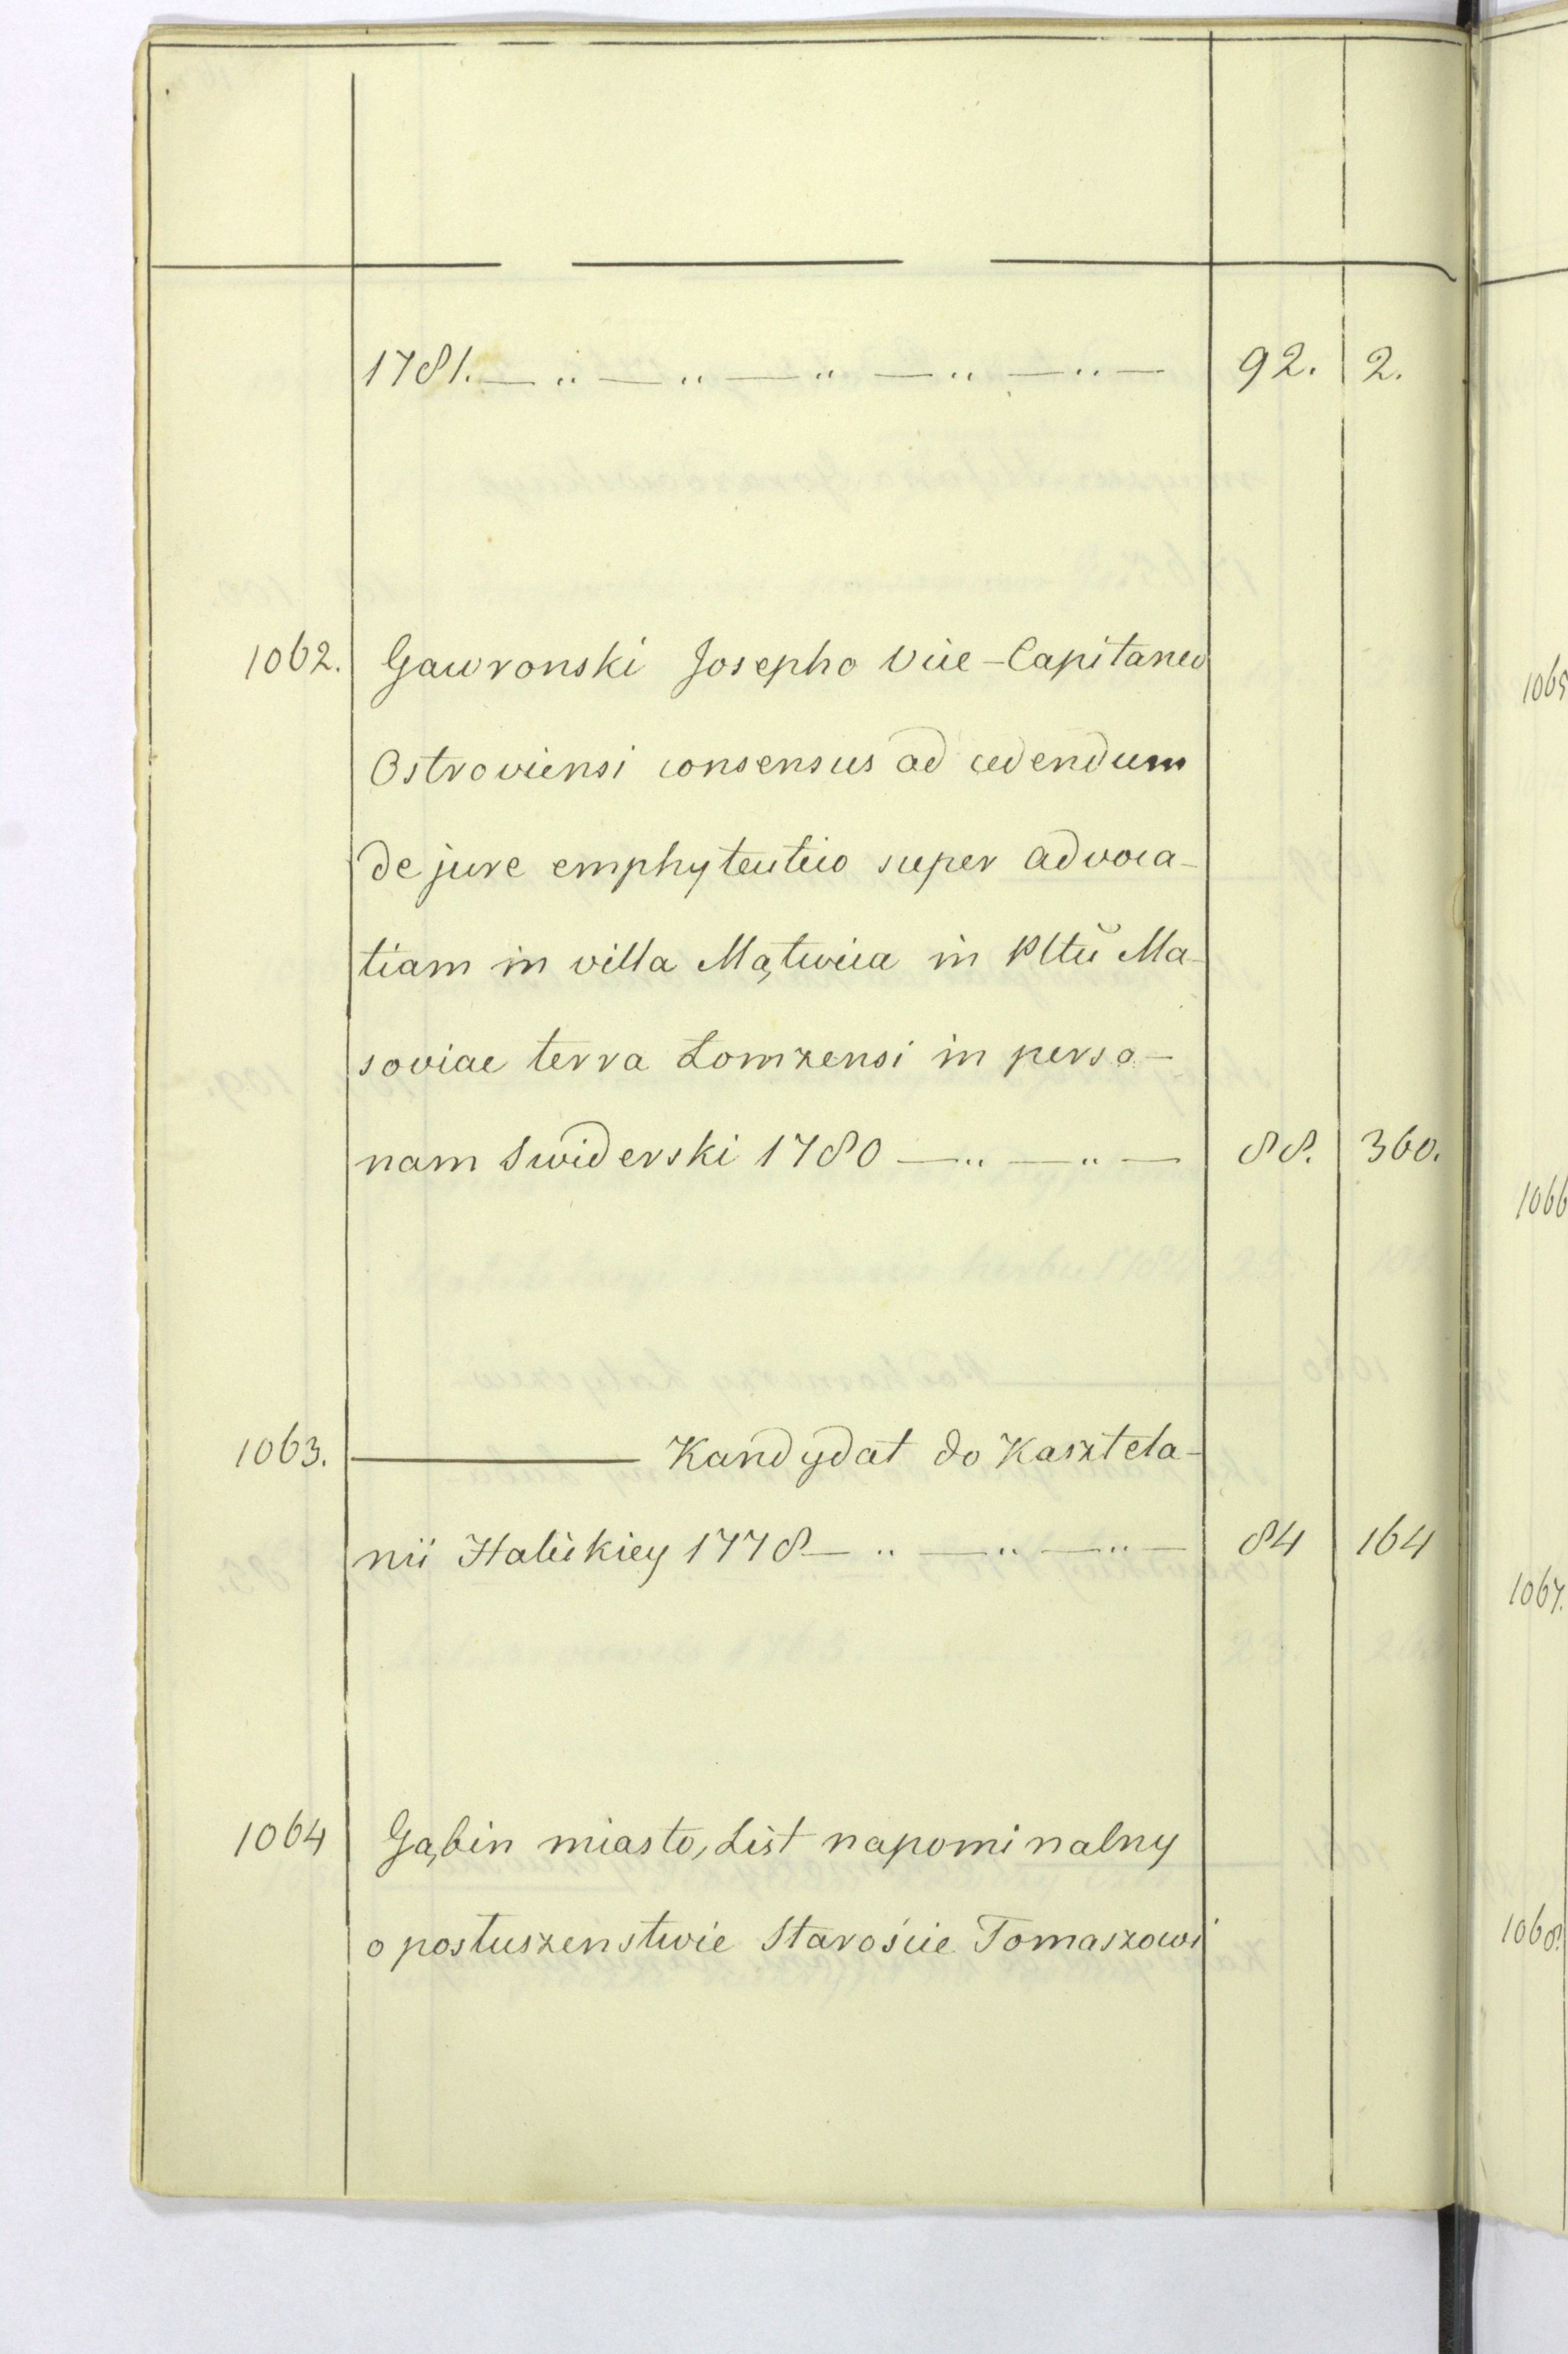 1781. — „ — „ — „ — „ — „ — 92. 2.
1062. Gawronski Josepho Vice-Capitaneo
Ostroviensi consensus ad cedendum
de jure emphyteutico super advoca-
tiam in villa Mątwica in Pltũ Ma-
soviae terra Lomzensi in perso-
nam Swiderski 1780 — „ — „ — 88. 360.
1063. ——— Kandydat do Kasztela-
nii Halickiey 1778 — „ — „ — „ — 84 164
1064 Gąbin miasto, List napominalny
o postuszenstwie Staroście Tomaszowi
1065
1066
1067.
1068.